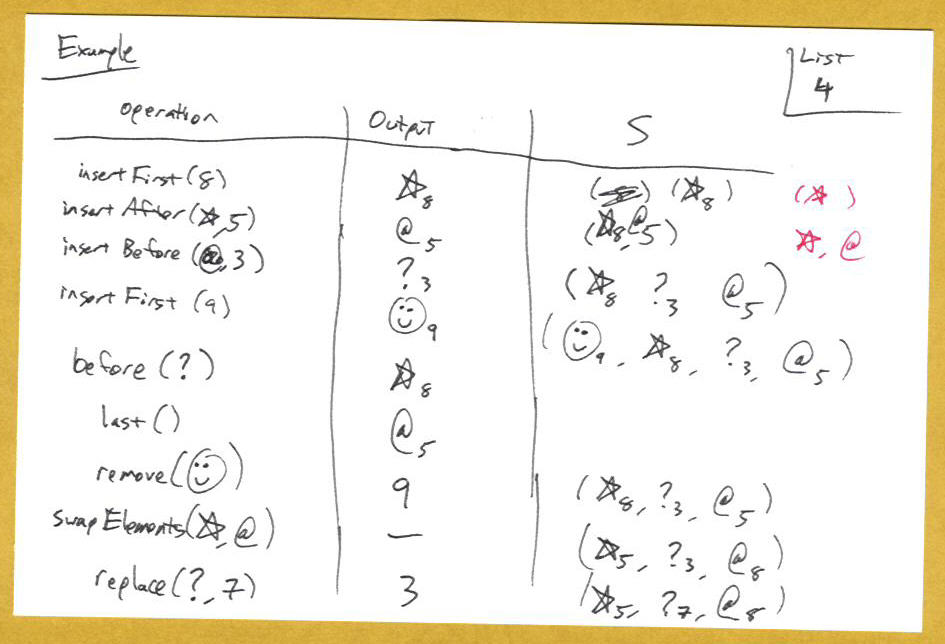 Example
List
4
operation Output S
insertFirst(8) ☆8 (☆8) (☆)
insertAfter(☆,5) @5 (☆8,@5) ☆,@
insertBefore(@,3) ?3 (☆8 ?3 @5)
insertFirst(9) ☺9 (☺9, ☆8, ?3, @5)
before(?) ☆8
last() @5
remove(☺) 9 (☆8, ?3, @5)
swapElements(☆,@) — (☆5, ?3, @8)
replace(?,7) 3 (☆5, ?7, @8)